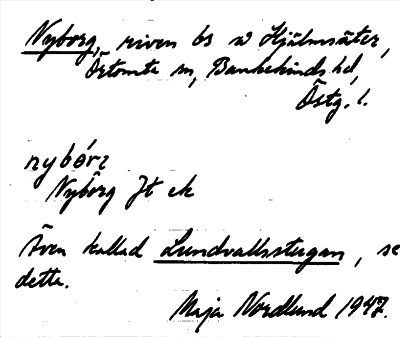 Nyborg, riven bs v Hjälmsäter,
Örtomta sn, Bankekinds hd,
Östg. l.
nybórj
Nyborg Jt ek
Även kallad Lundvallsstugan, se
detta.
Maja Nordlund 1947.